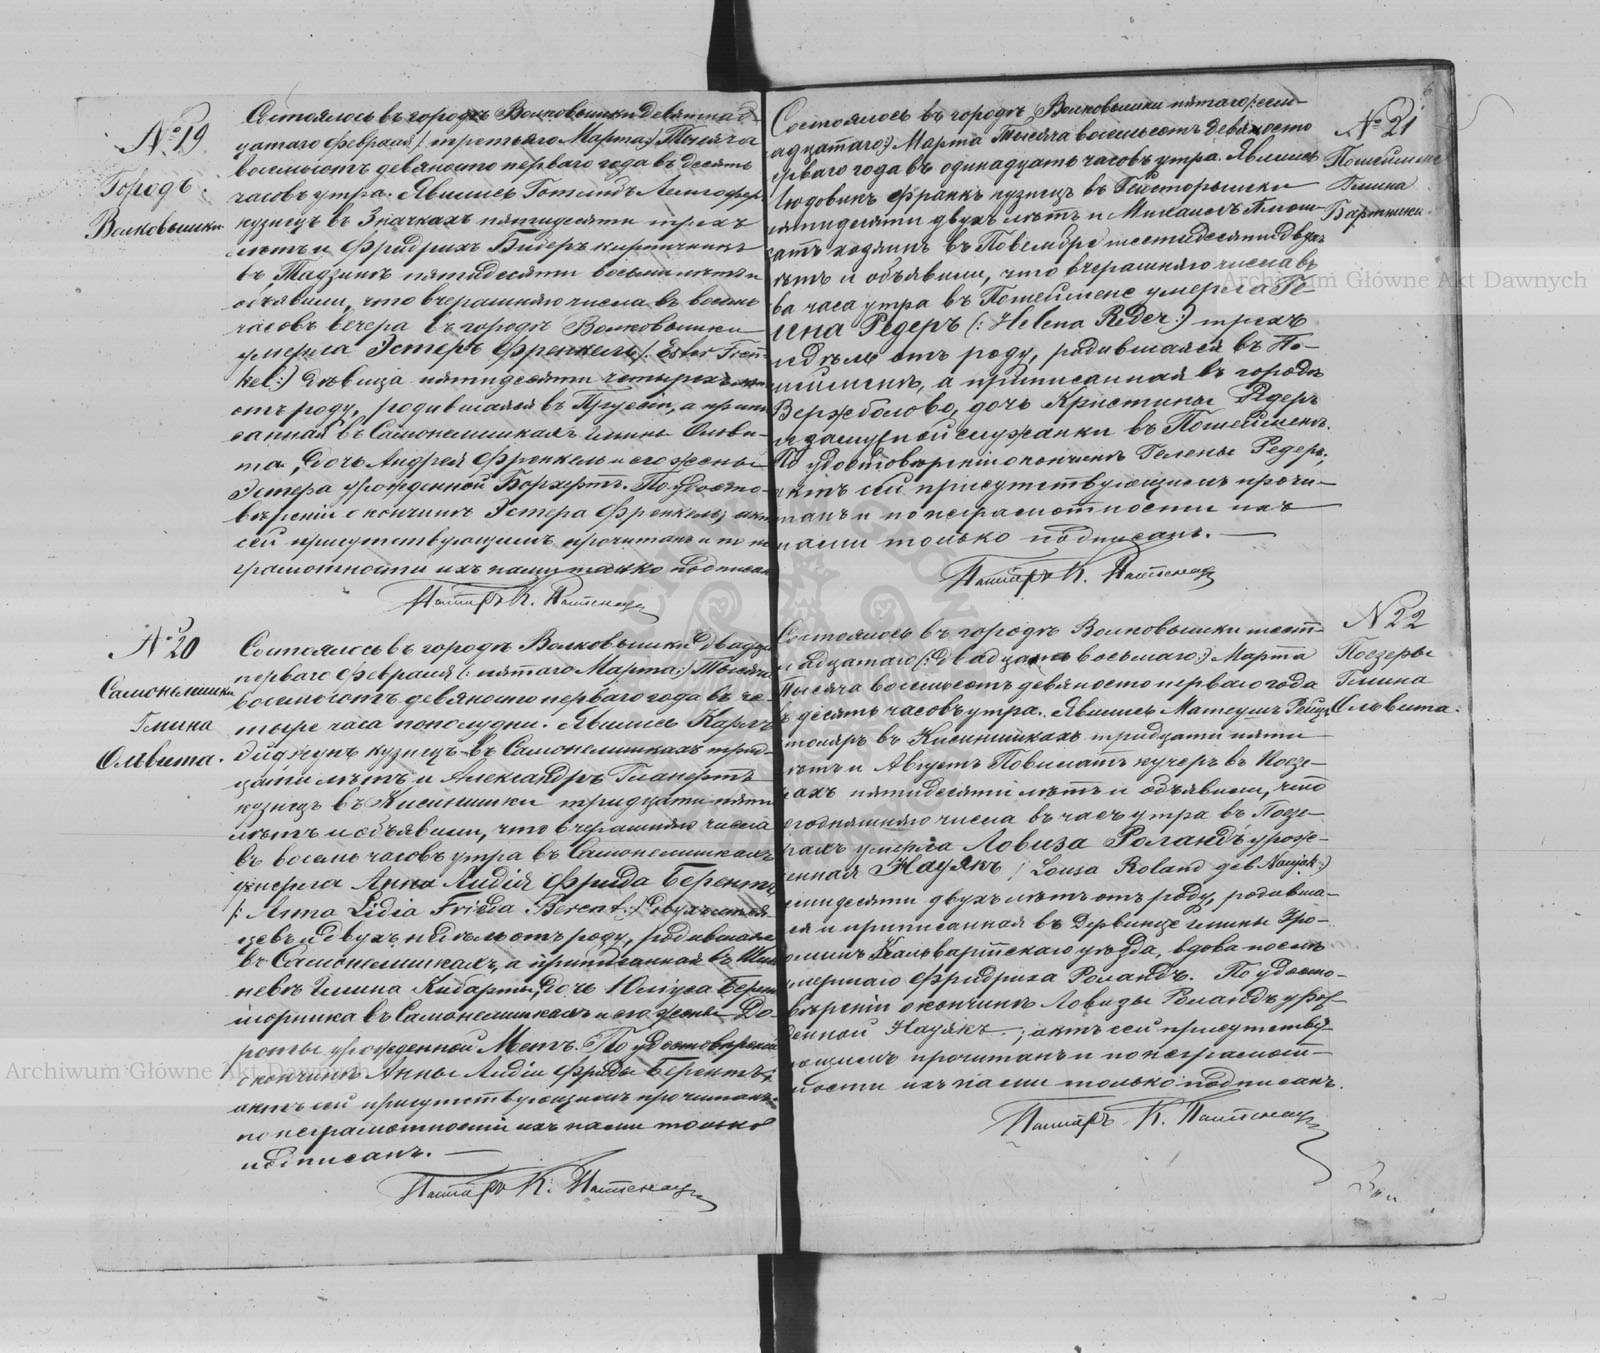 № 19
Городъ
Волковышки
Состоялось въ городѣ Волковышки девятнад-
цатаго Февраля (: третьяго Марта:) Тысяча
восемьсотъ девяносто перваго года въ десять
часовъ утра. Явились Готлибъ
кузнецъ въ пятидесяти трехъ
лѣтъ и Фридрихъ Бидеръ кирпичникъ
въ пятидесяти восьми лѣтъ и
объявили, что вчерашняго числа въ восемь
часовъ вечера въ городѣ Волковышки
умерла Эстеръ Френкель (: Ester Fren-
kel:) дѣвица пятидесяти четырехъ лѣтъ
отъ роду, родившаяся въ Пруссіи, а припи-
санная въ Самонелишкахъ гмины Ольви-
та, дочь Андрея Френкель и его жены
Эстера урожденной Борхертъ. По удосто-
вѣреніи о кончинѣ Эстера Френкель, актъ
сей присутствующимъ прочитанъ и по не
грамотности ихъ нами только подписанъ
Пасторъ К.
№ 20
Самонелишки
Гмина
Ольвита.
Состоялось въ городѣ Волковышки двадцать
перваго Февраля (: пятаго Марта:) Тысяча
восемьсотъ девяносто перваго года въ че-
тыре часа пополудни. Явились Карлъ
кузнецъ въ Самонелишкахъ трид-
цати лѣтъ и Александръ
кузнецъ въ Кисинишки тридцати пяти
лѣтъ и объявили, что вчерашняго числа
въ восемь часовъ утра въ Самонелишкахъ
умерла Анна Лидія Фрида Берентъ
(: Anna Lidia Frida Berent:) двухъ мѣся-
цевъ и двухъ недѣль отъ роду, родившаяся
въ Самонелишкахъ, а приписанная въ
невѣ Гмина Кибарты, дочь Юлиуса Берентъ
шорника въ Самонелишкахъ и его жены До-
роты урожденной Метъ. По удостовѣреніи
о кончинѣ Анны Лидіи Фриды Берентъ,
актъ сей присутствующимъ прочитанъ
по неграмотности ихъ нами только
подписанъ. —
Пасторъ К.
6
№ 21
Гмина
Бартники.
Состоялось въ городѣ Волковышки пятаго (: сем-
надцатаго:) Марта Тысяча восемьсотъ девяносто
перваго года въ одинадцать часовъ утра. Явились
Людовикъ Франкъ кузнецъ въ
пятидесяти двухъ лѣтъ и Михаилъ
хозяинъ въ шестидесяти двухъ
лѣтъ и объявили, что вчерашняго числа въ
два часа утра въ умерла Ге-
лена Редеръ (: Helena Reder:) трехъ
недѣль отъ роду, родившаяся въ По-
а приписанная въ городѣ
Вержболово, дочь Кристины Редеръ
незамужной служанки въ
По удостовѣреніи о кончинѣ Гелены Редеръ,
актъ сей присутствующимъ прочи-
танъ и по неграмотности ихъ
нами только подписанъ. —
Пасторъ К.
№ 22
Поезеры
Гмина
Ольвита.
Состоялось въ городѣ Волковышки шест-
надцатаго (: двадцать восьмаго:) Марта
Тысяча восемьсотъ девяносто перваго года
въ десять часовъ утра. Явились Матеушъ
столяръ въ Кисинишкахъ тридцати пяти
лѣтъ и Августъ кучеръ въ Поезе-
рахъ пятидесяти лѣтъ и объявили, что
сегодняшняго числа въ часъ утра въ Поезе-
рахъ умерла Ловиза Роландъ урож-
денная Науякъ (: Louisa Roland geb. Naujak:)
двухъ лѣтъ отъ роду, родивша-
яся и приписанная въ Гмины
Кальварійскаго уѣзда, вдова послѣ
умершаго Фридриха Роландъ. По удосто-
вѣреніи о кончинѣ Ловизы Роландъ урож-
денной Науякъ, актъ сей присутству-
ющимъ прочитанъ и по неграмот-
ности ихъ нами только подписанъ.
Пасторъ К.
Archiwum Główne Akt Dawnych
Archiwum Główne Akt Dawnych